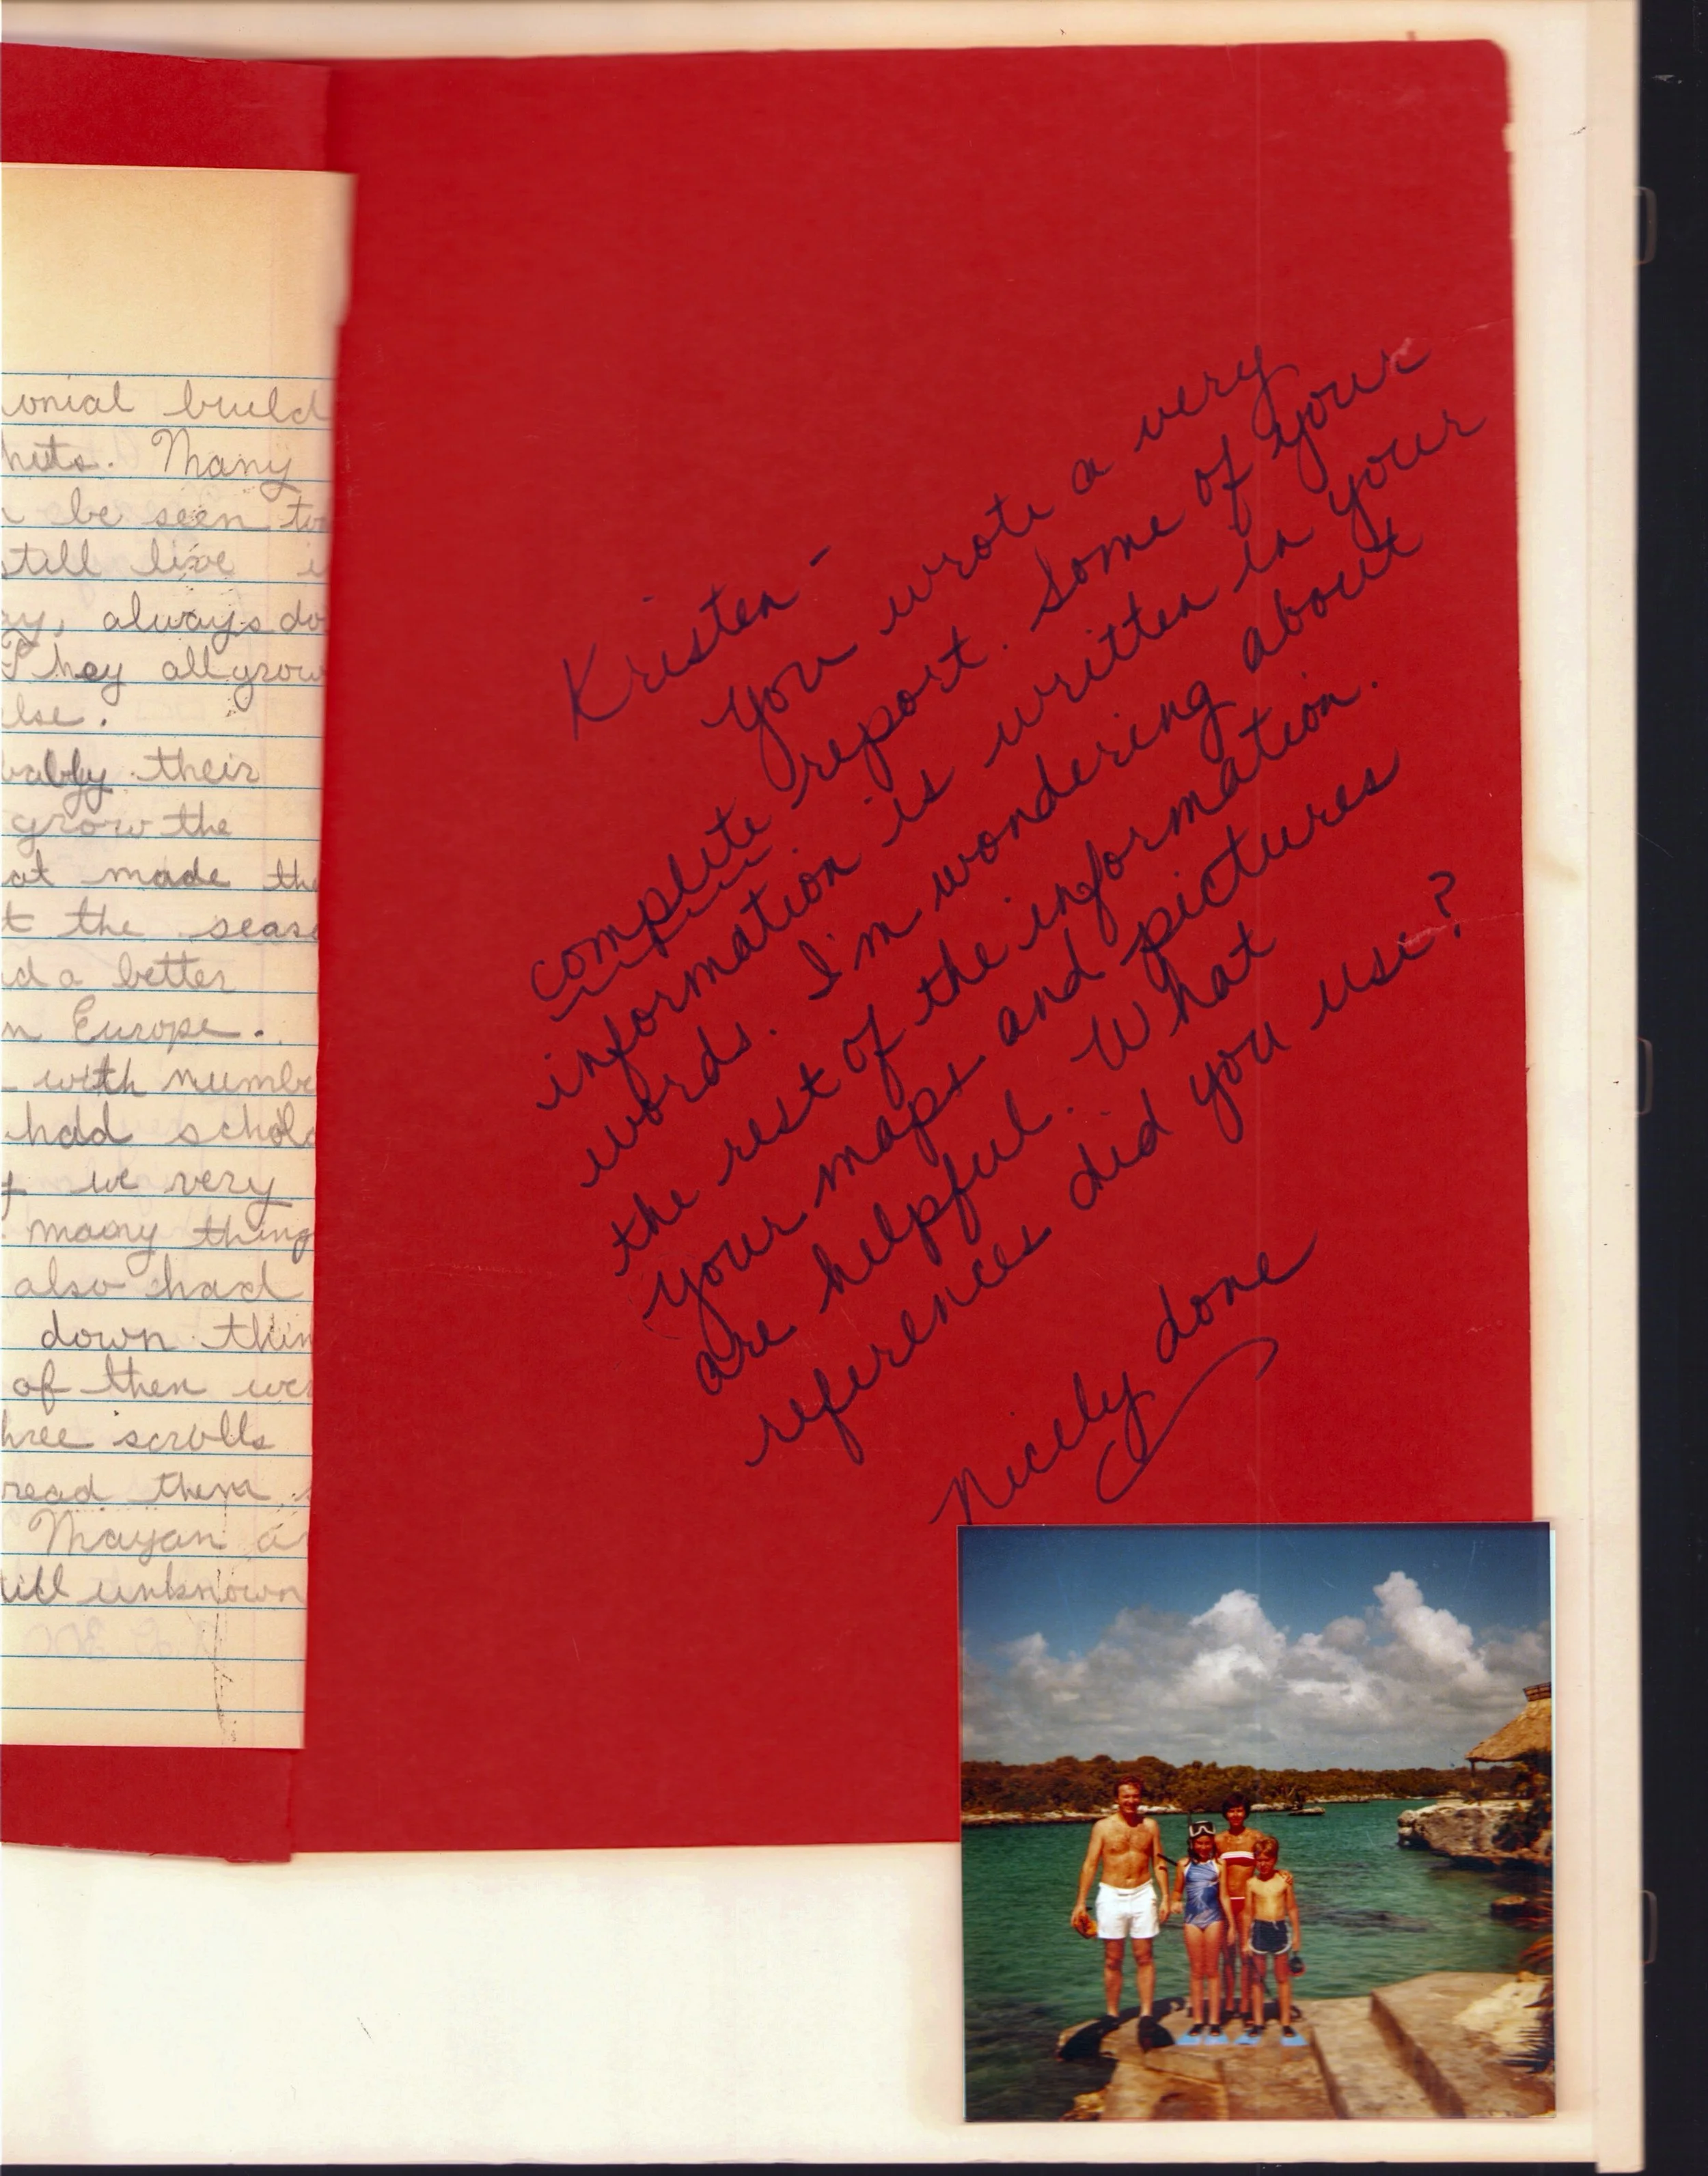 onial build
huts. Many
be seen to
still live i
ay, always do
They all grow
lse.
bably their
grow the
at made the
t the seas
d a better
n Europe.
with numbe
had schola
we very
many thing
also had
down thin
of then wer
hree scrolls
read them
Mayan a
till unknown
Kristen -
You wrote a very
complete report. Some of your
information is written in your
words. I'm wondering about
the rest of the information.
Your maps and pictures
are helpful. What
references did you use?
Nicely done